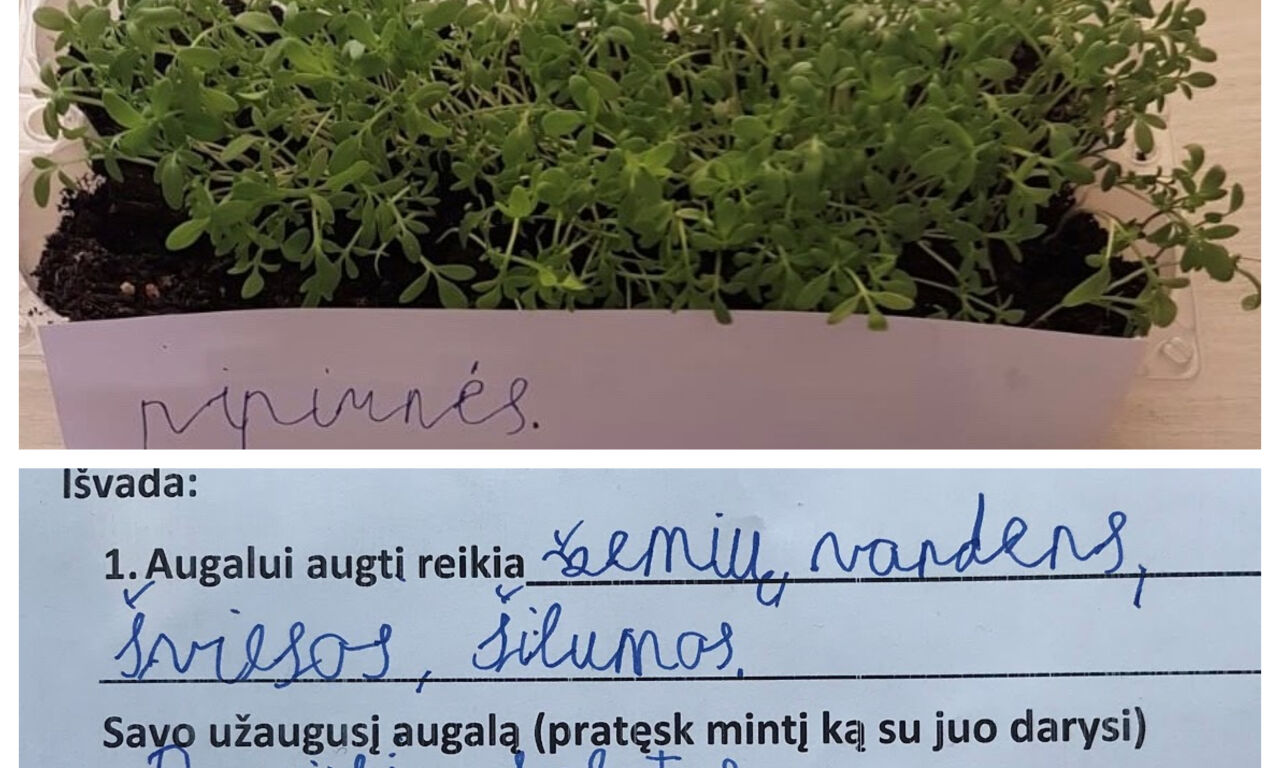 pipirnės.
Išvada:
1. Augalui augti reikia žemių, vandens,
šviesos, šilumos.
Savo užaugusį augalą (pratęsk mintį ką su juo darysi)